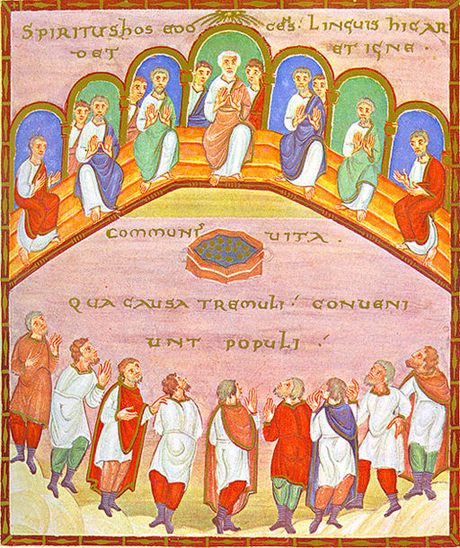 SPIRITUSHOS EDO LINGUIS HICAR
DET ET IGNE ·
COMMUNI' UITA ·
QUA CAUSA TREMULI ; CONUENI
UNT POPULI ;